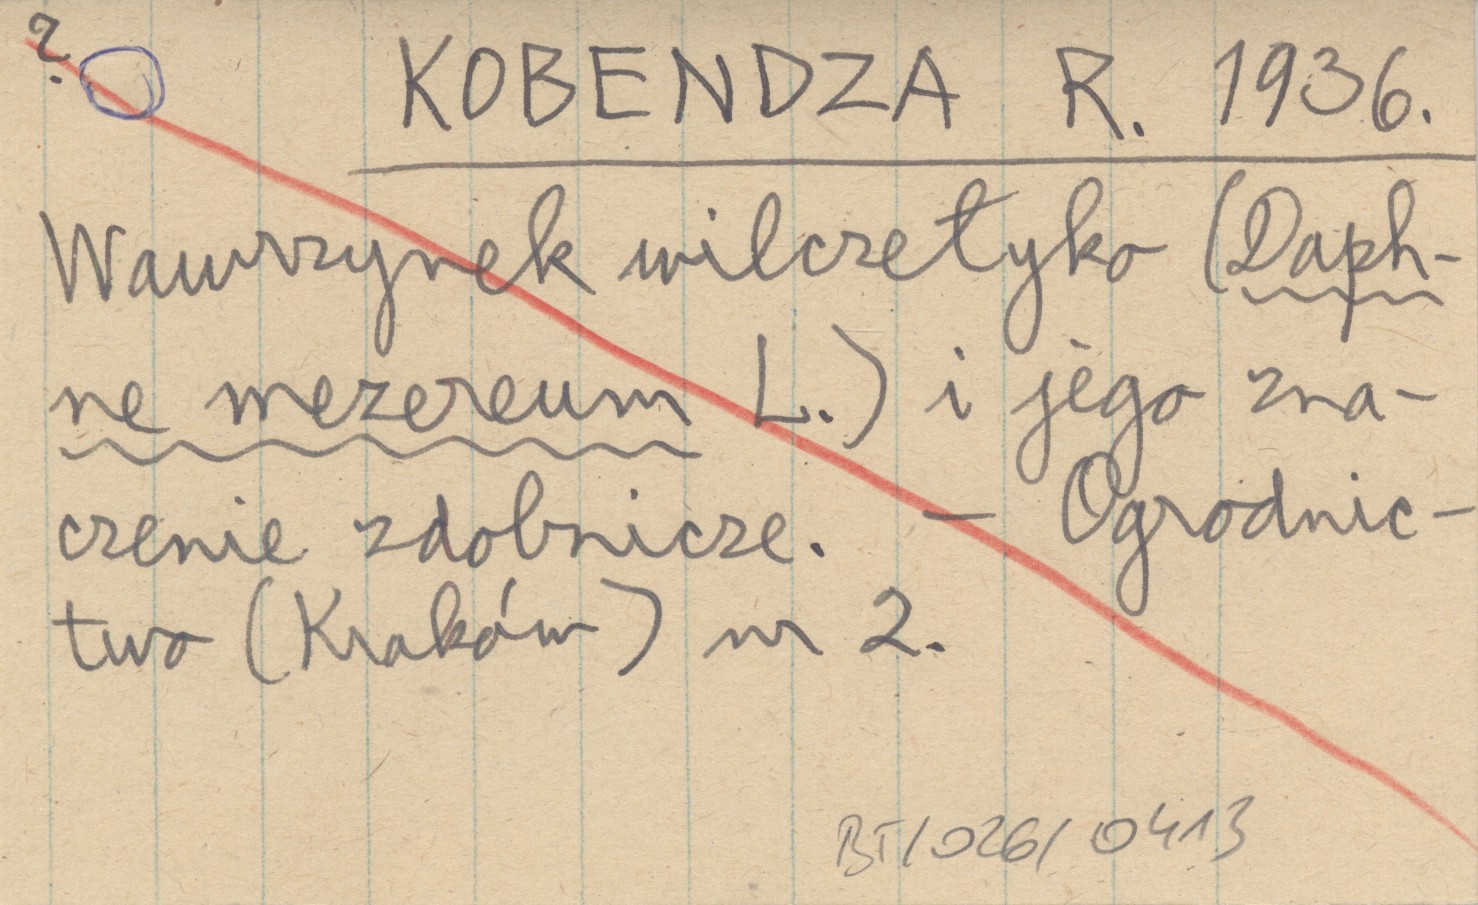 ?
KOBENDZA R. 1936.
Wawrzynek wilczełyko (Daph-
ne mezereum L.) i jego zna-
czenie zdobnicze. – Ogrodnic-
two (Kraków) nr 2.
BT/026/0413